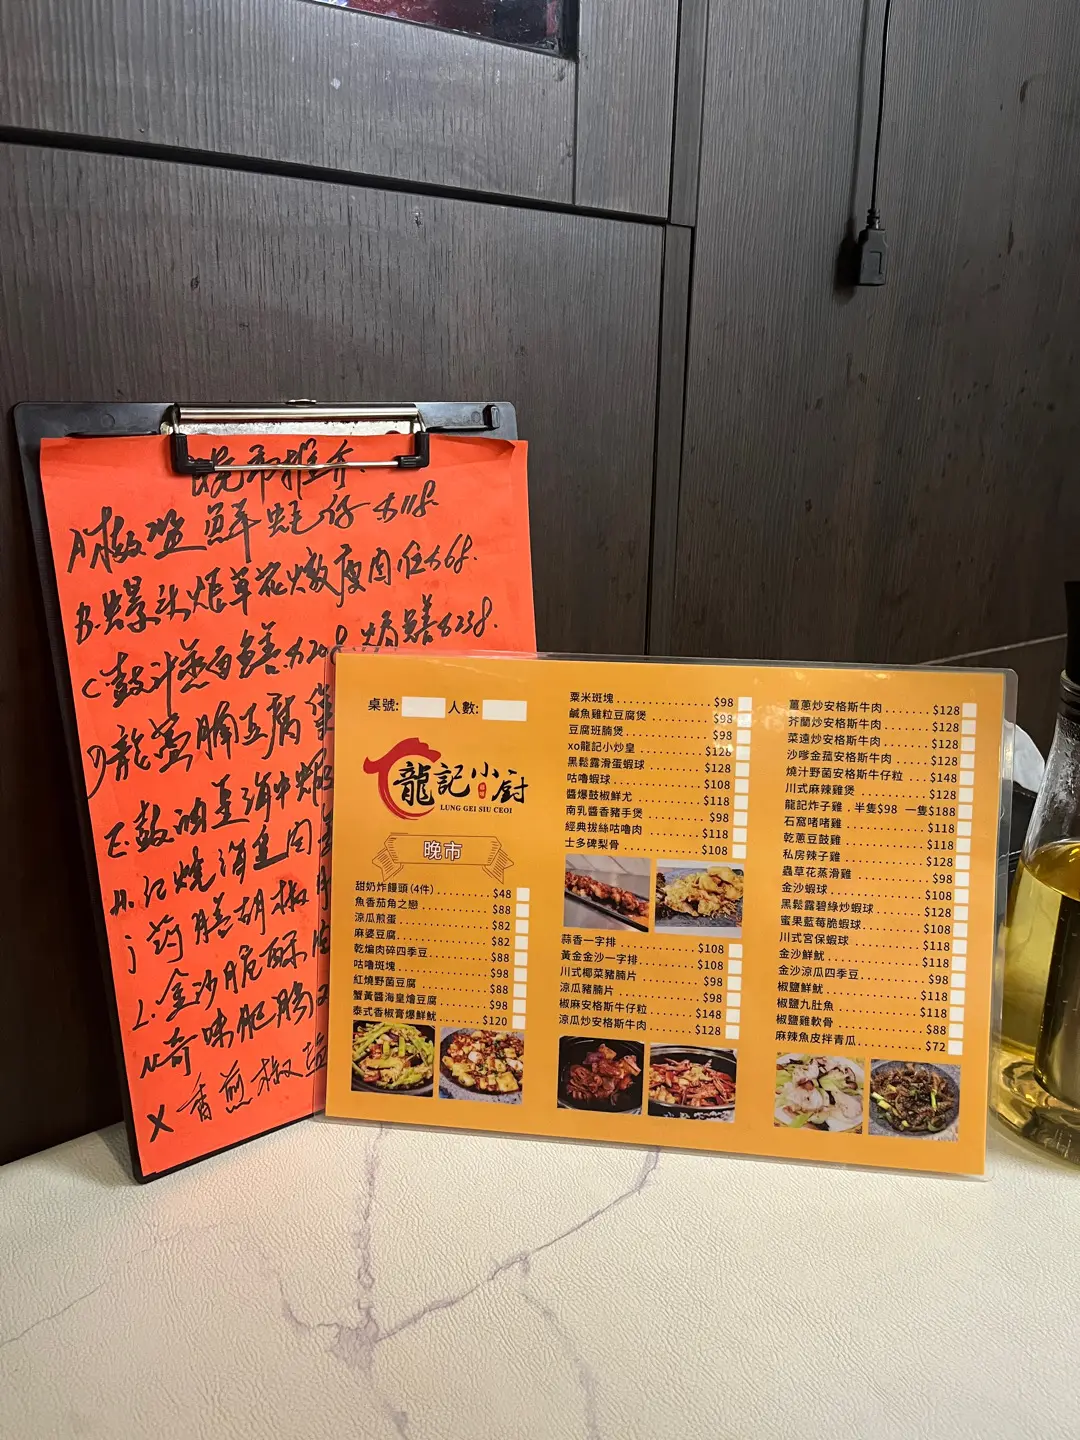 晚市推介
A.椒鹽鮮蚝仔$118.
B.螺头虫草花燉瘦肉 位$68.
C.鼓汁蒸白鱔$208. 焗鱔$238.
D龍蓉腩豆腐
桌號: 人數:
龍記小厨
LUNG GEI SIU CEOI
晚市
甜奶炸饅頭(4件) $48
魚香茄角之戀 $88
涼瓜煎蛋 $82
麻婆豆腐 $82
乾煸肉碎四季豆 $88
咕嚕斑塊 $98
紅燒野菌豆腐 $88
蟹黃醬海皇燴豆腐 $98
泰式香椒膏爆鮮魷 $120
粟米斑塊 $98
鹹魚雞粒豆腐煲 $98
豆腐班腩煲 $98
xo龍記小炒皇 $128
黑鬆露滑蛋蝦球 $128
咕嚕蝦球 $108
醬爆鼓椒鮮尤 $118
南乳醬香豬手煲 $98
經典拔絲咕嚕肉 $118
士多碑梨骨 $108
蒜香一字排 $108
黃金金沙一字排 $108
川式椰菜豬腩片 $98
涼瓜豬腩片 $98
椒麻安格斯牛仔粒 $148
涼瓜炒安格斯牛肉 $128
薑蔥炒安格斯牛肉 $128
芥蘭炒安格斯牛肉 $128
菜遠炒安格斯牛肉 $128
沙嗲金菇安格斯牛肉 $128
燒汁野菌安格斯牛仔粒 $148
川式麻辣雞煲 $128
龍記炸子雞 . 半隻$98 一隻$188
石窩啫啫雞 $118
乾蔥豆豉雞 $118
私房辣子雞 $128
蟲草花蒸滑雞 $98
金沙蝦球 $108
黑鬆露碧綠炒蝦球 $128
蜜果藍莓脆蝦球 $108
川式宮保蝦球 $118
金沙鮮魷 $118
金沙涼瓜四季豆 $98
椒鹽鮮魷 $118
椒鹽九肚魚 $118
椒鹽雞軟骨 $88
麻辣魚皮拌青瓜 $72